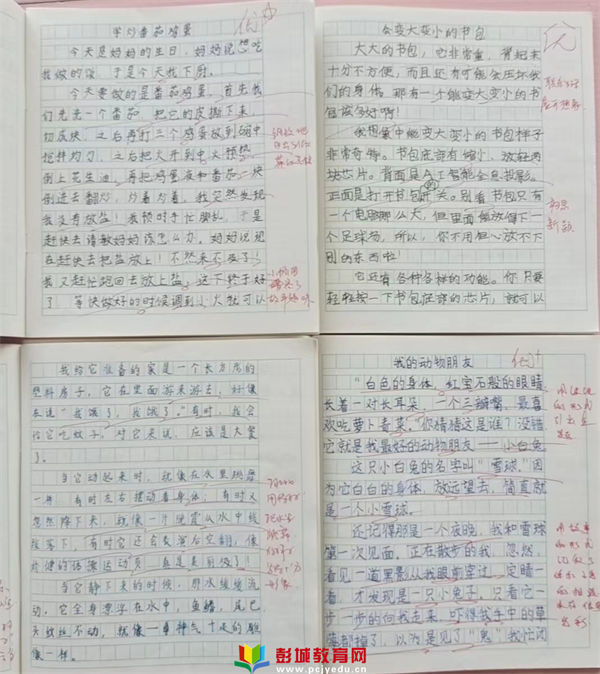 学炒番茄鸡蛋
今天是妈妈的生日，妈妈说想吃
我做的饭，于是今天我下厨。
今天要做的是番茄鸡蛋。首先我
们先洗一个番茄，把它的皮撕下来，
切成块，之后再打三个鸡蛋放到碗中
搅拌均匀，之后把火开到中火预热，
倒上花生油，再把鸡蛋液和番茄一块
倒进去翻炒，炒着炒着，我突然发现
我没有放盐！我顿时手忙脚乱，于是
赶快去请教妈妈该怎么办。妈妈说现
在赶快去把盐放上！不然来不及了！
我又赶忙跑回去放上盐，这下终于好
了，等快做好的时候调到小火就可以
优
会变大变小的书包
大大的书包，它非常重，背起来
十分不方便，而且还有可能会压坏我
们的身体，那有一个能变大变小的书
包该多好啊！
我想象中能变大变小的书包样子
非常奇特。书包底部有缩小、放轻两
块芯片。背面是AI智能全息投影。
正面是打开书包的开关。别看书包只有
一个电脑那么大，但里面能放得下一
个足球场，所以，你不用担心放不下
别的东西啦！
它还有各种各样的功能。你只要
轻轻按一下书包底部的芯片，就可以
构思
新颖
我给它准备的家是一个长方形的
塑料房子，它在里面游来游去，好像
在说“我饿了，我饿了。”有时，我会
给它吃蚊子，对它来说，应该是大餐
了。
当它动起来时，就像在水里跳舞
一样，有时左右摆动着身体；有时又
忽然降下来，就像一个硬币从水中缓
缓落下，有时它还会表演后空翻，像
矫健的体操运动员，真是美丽极了。
当它静下来的时候，那水缓缓流
动，它全身漂浮在水中，鱼鳍、尾巴
头纹丝不动，就像一尊神气十足的雕
像一样。
我的动物朋友
优+
“白色的身体，红宝石般的眼睛，
长着一对长耳朵，一个三瓣嘴，最喜
欢吃萝卜青菜。”你猜猜这是谁？没错，
它就是我最好的动物朋友——小白兔
这只小白兔的名字叫“雪球”因
为它白白的身体，放远望去，简直就
是一个小雪球。
还记得那是一个夜晚，我和雪球
第一次见面。正在散步的我，忽然，
看见一道黑影从我眼前穿过，定睛一
看，才发现是一只小兔子。只看它一
步一步的向我走来，吓得我手中的草
莓都掉了，以为是见了“鬼”我忙闭
彭城教育网
www.pcjyedu.cn